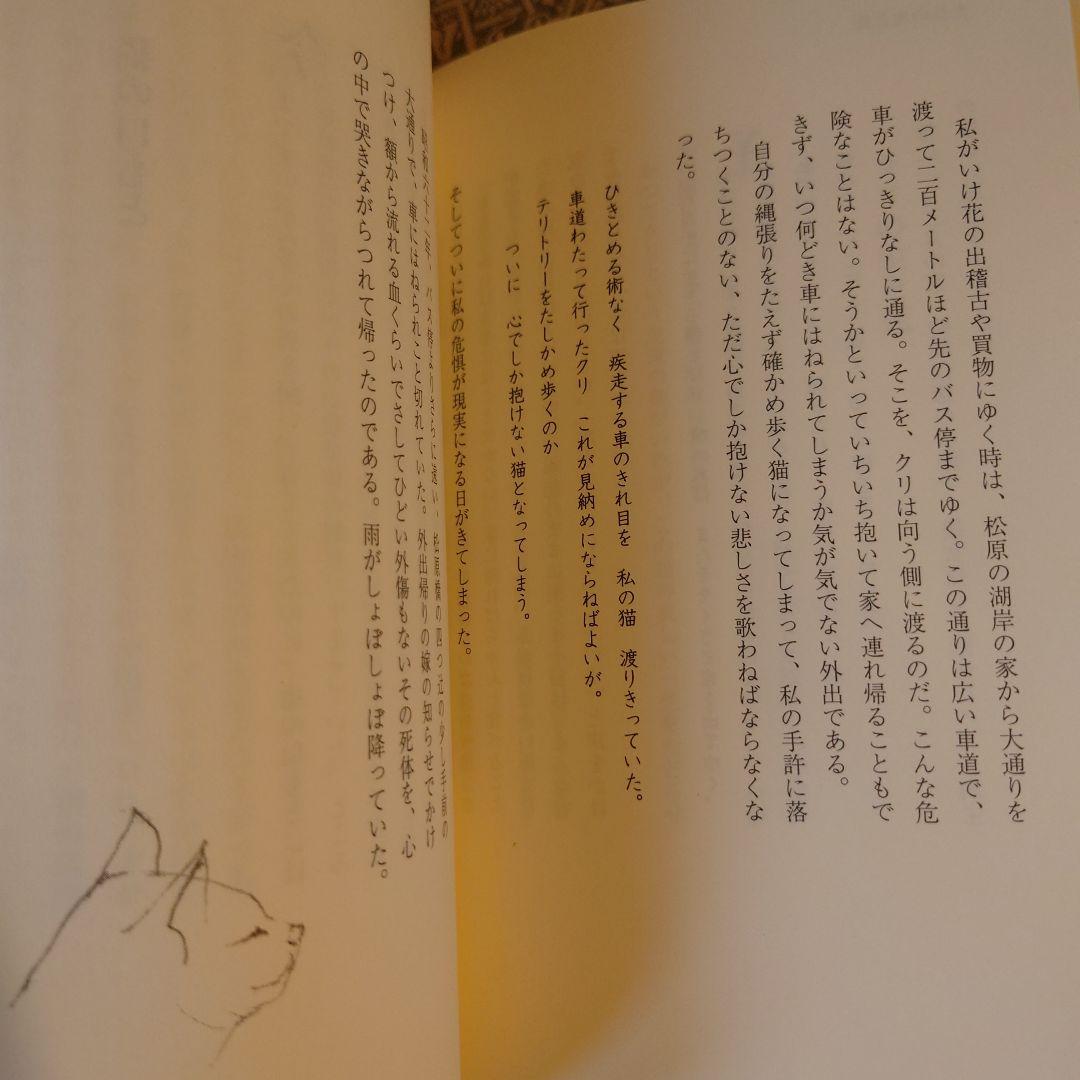 私がいけ花の出稽古や買物にゆく時は、松原の湖岸の家から大通りを
渡って二百メートルほど先のバス停までゆく。この通りは広い車道で、
車がひっきりなしに通る。そこを、クリは向う側に渡るのだ。こんな危
険なことはない。そうかといっていちいち抱いて家へ連れ帰ることもで
きず、いつ何どき車にはねられてしまうか気が気でない外出である。
自分の縄張りをたえず確かめ歩く猫になってしまって、私の手許に落
ちつくことのない、ただ心でしか抱けない悲しさを歌わねばならなくな
った。
ひきとめる術なく 疾走する車のきれ目を 私の猫 渡りきっていた。
車道わたって行ったクリ これが見納めにならねばよいが。
テリトリーをたしかめ歩くのか
ついに 心でしか抱けない猫となってしまう。
そしてついに私の危惧が現実になる日がきてしまった。
昭和六十二年、バス停よりさらに遠い、松原橋の四つ辻の少し手前の
大通りで、車にはねられこと切れていた。外出帰りの嫁の知らせでかけ
つけ、額から流れる血くらいでさしてひどい外傷もないその死体を、心
の中で哭きながらつれて帰ったのである。雨がしょぼしょぼ降っていた。